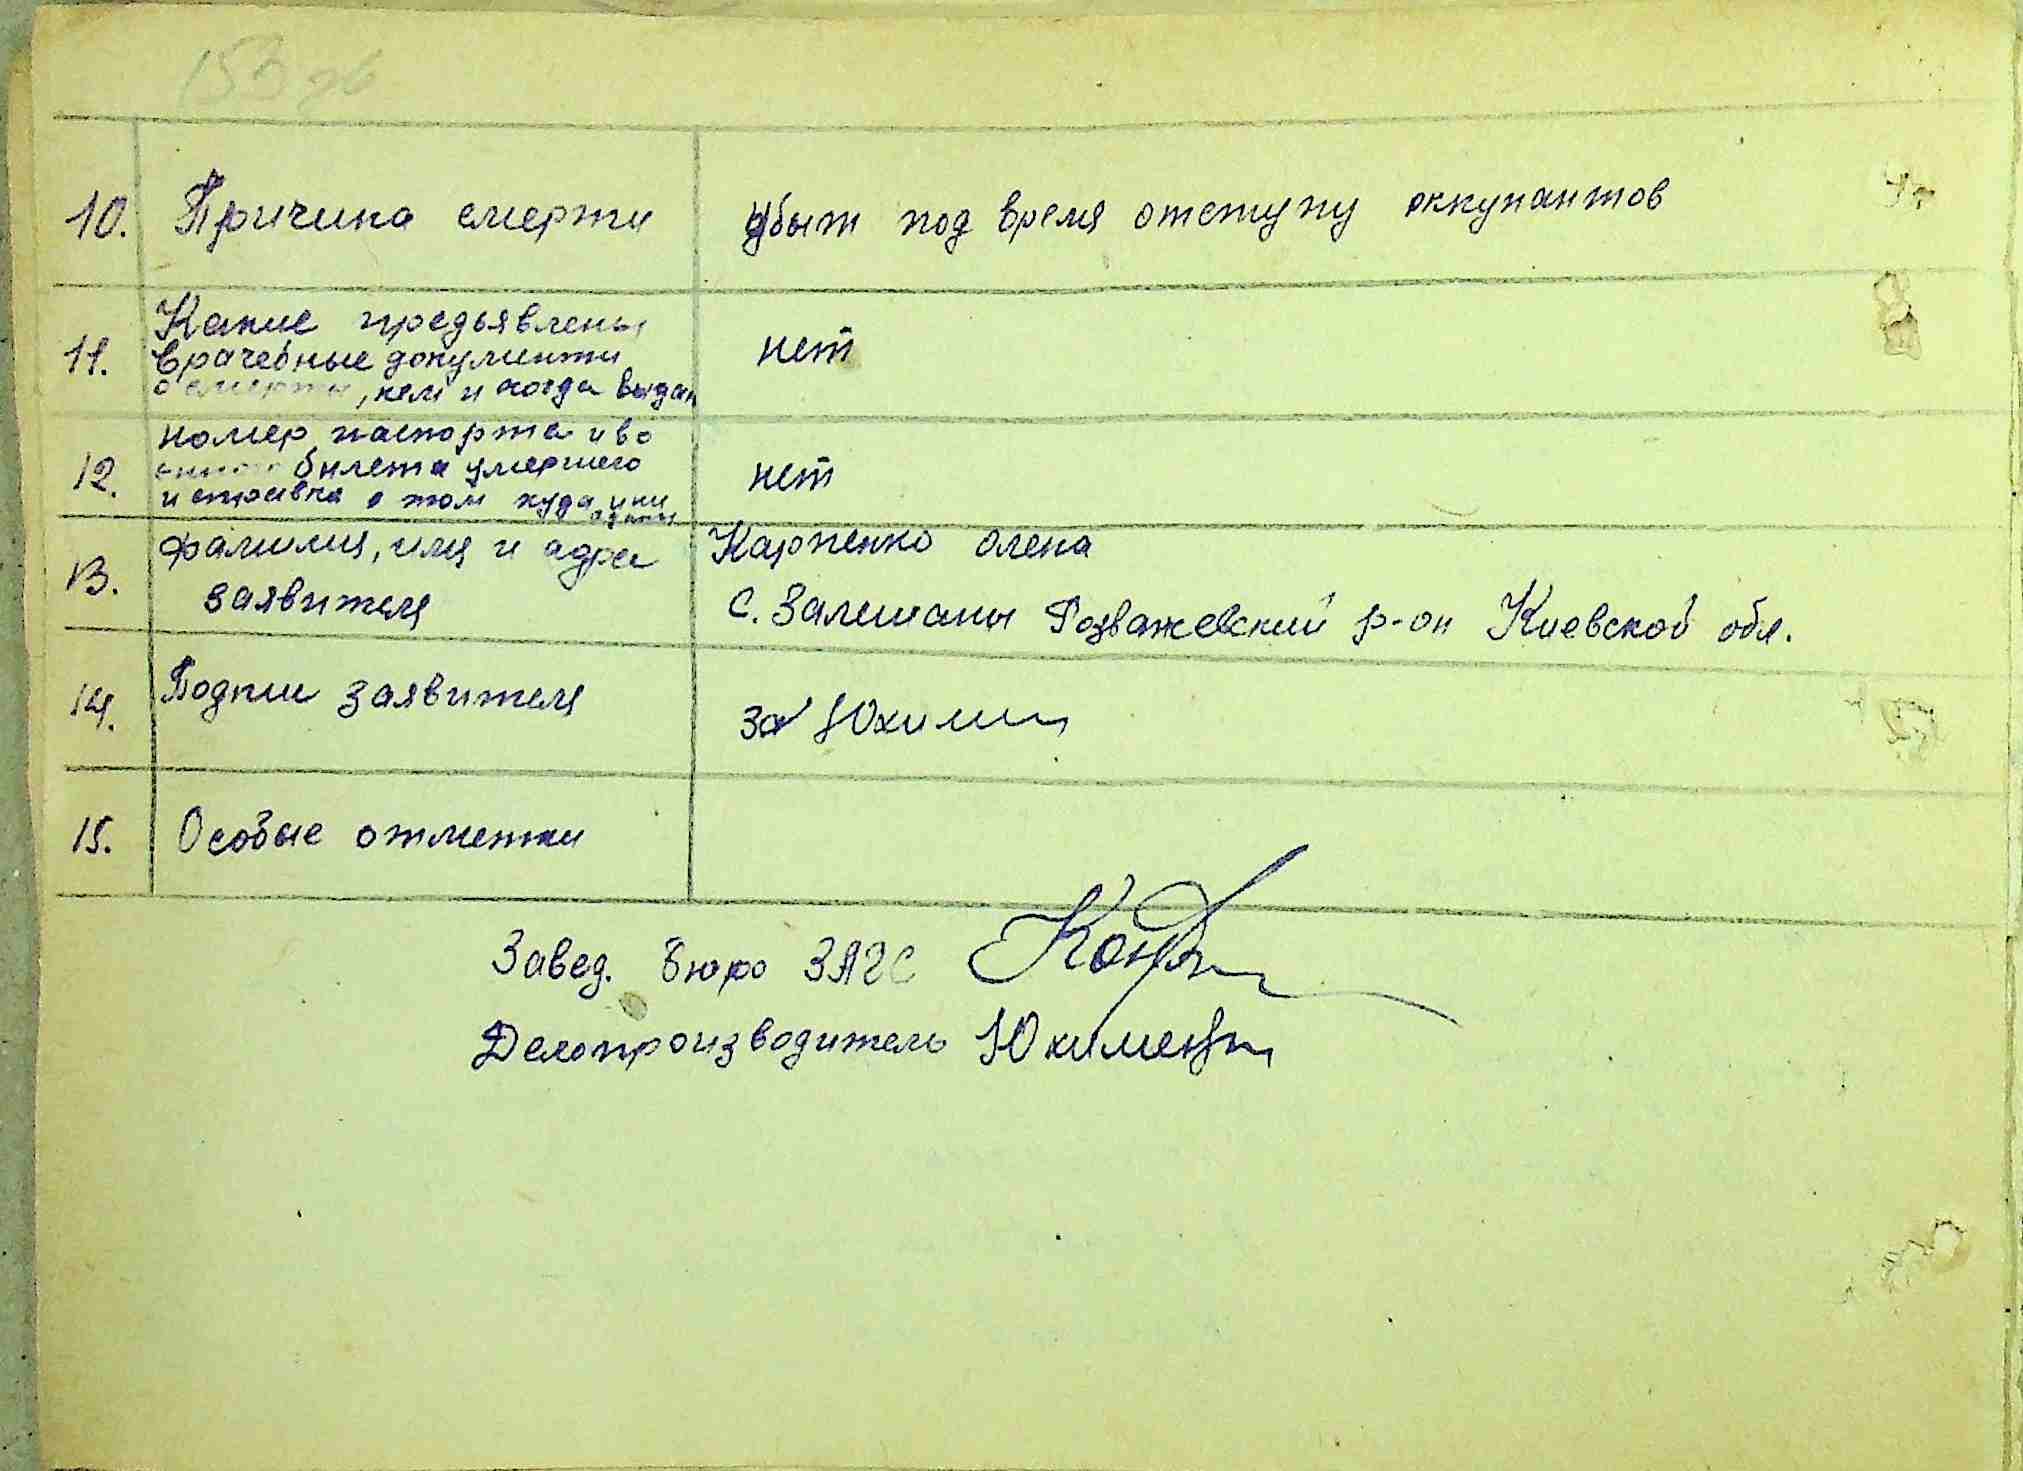 153 об
10. Причина смерти убыт под время отступу оккупантов
Какие предъявлены
11. врачебные документи нет
о смерти, кем и когда выдан
номер паспорта и во
12. билета умершего нет
и справка о том куда они
зданы
фамилия, имя и адре Карпенко Олена
13. заявителя с. Залишаны Розважевский р-он Киевской обл.
14. Подпи заявителя за Юхимен
15. Особые отметки
Завед. Бюро ЗАГС
Делопроизводитель Юхименко